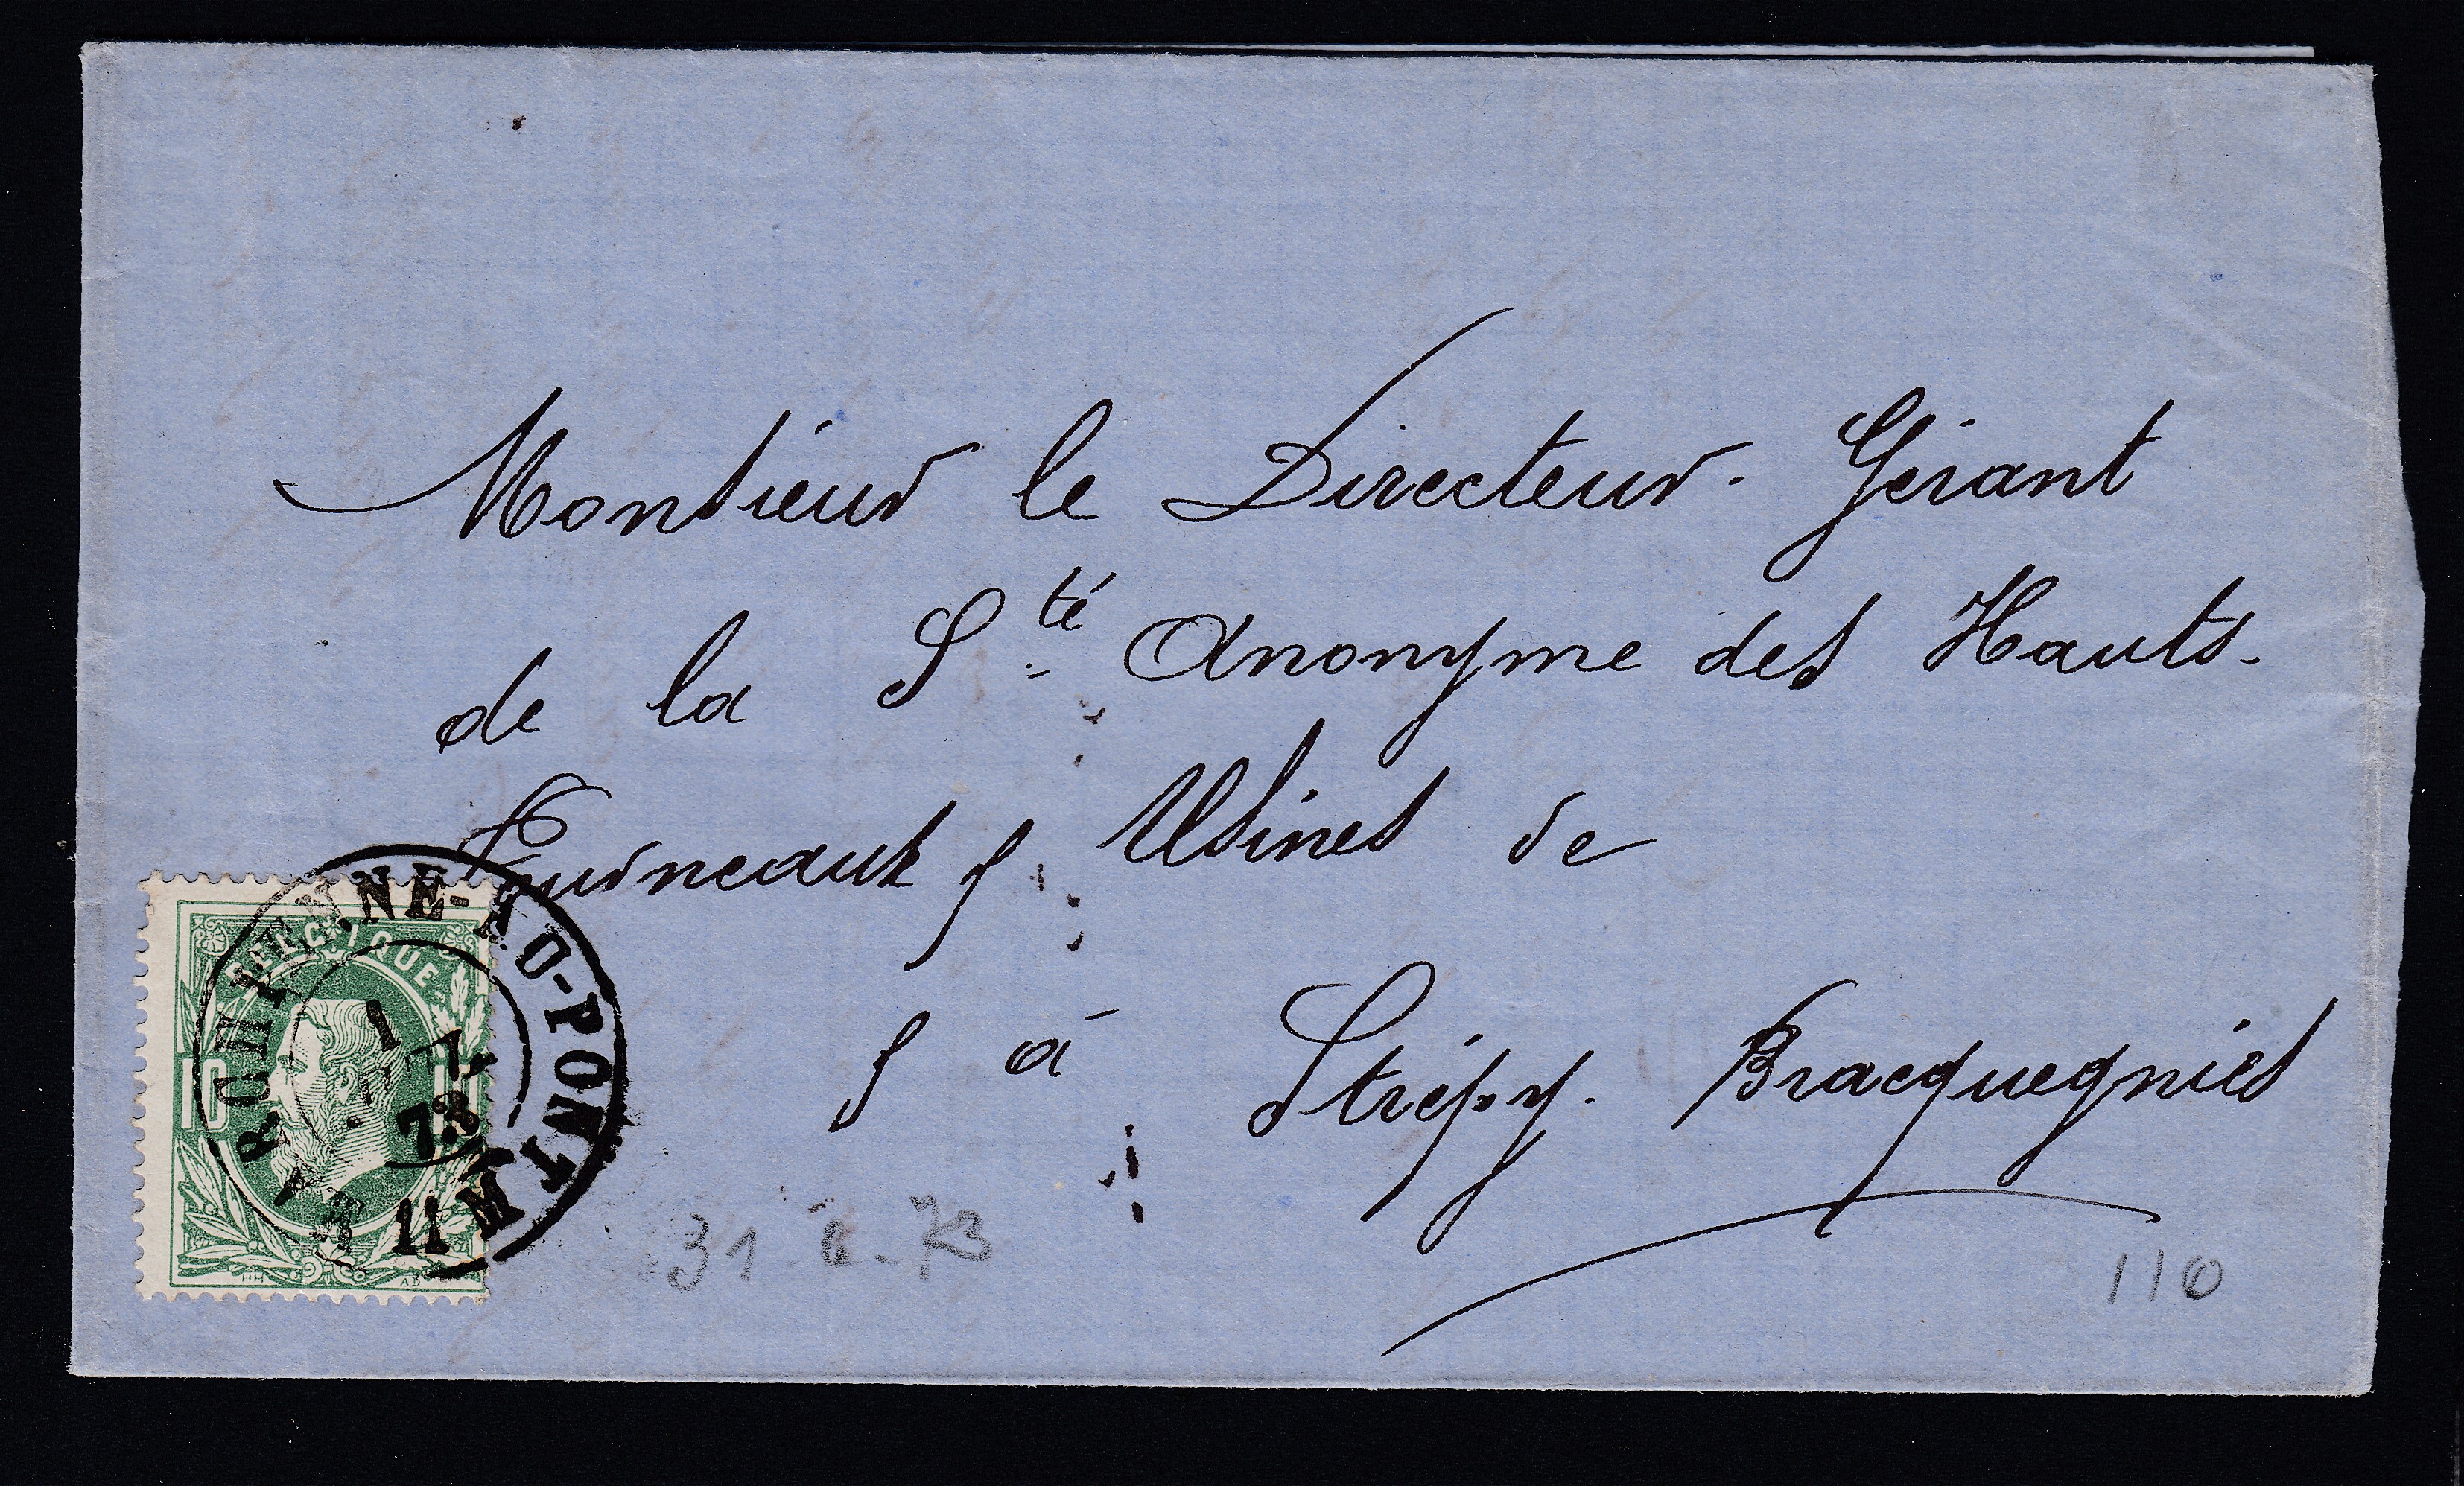 Monsieur le Directeur-Gérant
de la Sté Anonyme des Hauts-
Fourneaux & Usines de
& à Strépy-Bracquegnies
BELGIQUE
10 10
HH AD
MARCHIENNE-AU-PONT
1
73
11 M
31-6-73
110